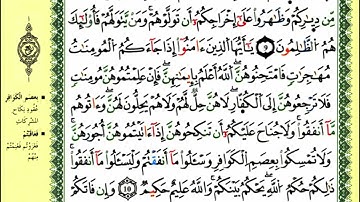 مِّن دِيَٰرِكُمْ وَظَٰهَرُوا۟ عَلَىٰٓ إِخْرَاجِكُمْ أَن تَوَلَّوْهُمْ ۚ وَمَن يَتَوَلَّهُمْ فَأُو۟لَٰٓئِكَ
هُمُ ٱلظَّٰلِمُونَ ٩ يَٰٓأَيُّهَا ٱلَّذِينَ ءَامَنُوٓا۟ إِذَا جَآءَكُمُ ٱلْمُؤْمِنَٰتُ
مُهَٰجِرَٰتٍ فَٱمْتَحِنُوهُنَّ ۖ ٱللَّهُ أَعْلَمُ بِإِيمَٰنِهِنَّ ۖ فَإِنْ عَلِمْتُمُوهُنَّ مُؤْمِنَٰتٍ
فَلَا تَرْجِعُوهُنَّ إِلَى ٱلْكُفَّارِ ۖ لَا هُنَّ حِلٌّ لَّهُمْ وَلَا هُمْ يَحِلُّونَ لَهُنَّ ۖ وَءَاتُوهُم
مَّآ أَنفَقُوا۟ ۚ وَلَا جُنَاحَ عَلَيْكُمْ أَن تَنكِحُوهُنَّ إِذَآ ءَاتَيْتُمُوهُنَّ أُجُورَهُنَّ ۚ
وَلَا تُمْسِكُوا۟ بِعِصَمِ ٱلْكَوَافِرِ وَسْـَٔلُوا۟ مَآ أَنفَقْتُمْ وَلْيَسْـَٔلُوا۟ مَآ أَنفَقُوا۟ ۚ
ذَٰلِكُمْ حُكْمُ ٱللَّهِ ۖ يَحْكُمُ بَيْنَكُمْ ۚ وَٱللَّهُ عَلِيمٌ حَكِيمٌ ١٠ وَإِن فَاتَكُمْ
بِعِصَمِ الْكَوَافِرِ
عقود نكاح
المشركات
فَعَاقَبْتُمْ
منهم